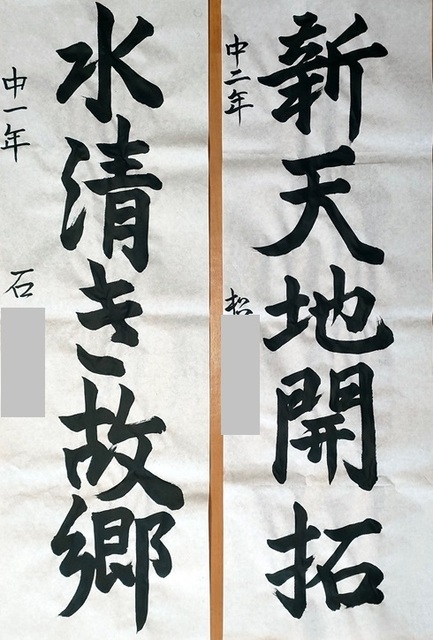 新天地開拓
中二年
松
水清き故郷
中一年
石